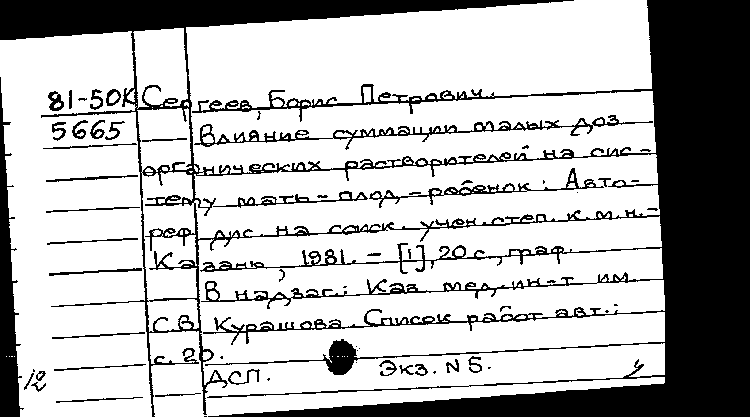 81-50К Сергеев, Борис Петрович.
5665 Влияние суммации малых доз
органических растворителей на сис-
тему мать-плод-ребенок: Авто-
реф. дис. на соиск. учен. степ. к.м.н.-
Казань, 1981. - [1], 20 с., граф.
В надзаг.: Каз. мед. ин-т им.
С.В. Курашова. Список работ авт.:
с. 20.
12 ДСП. Экз. N 5.